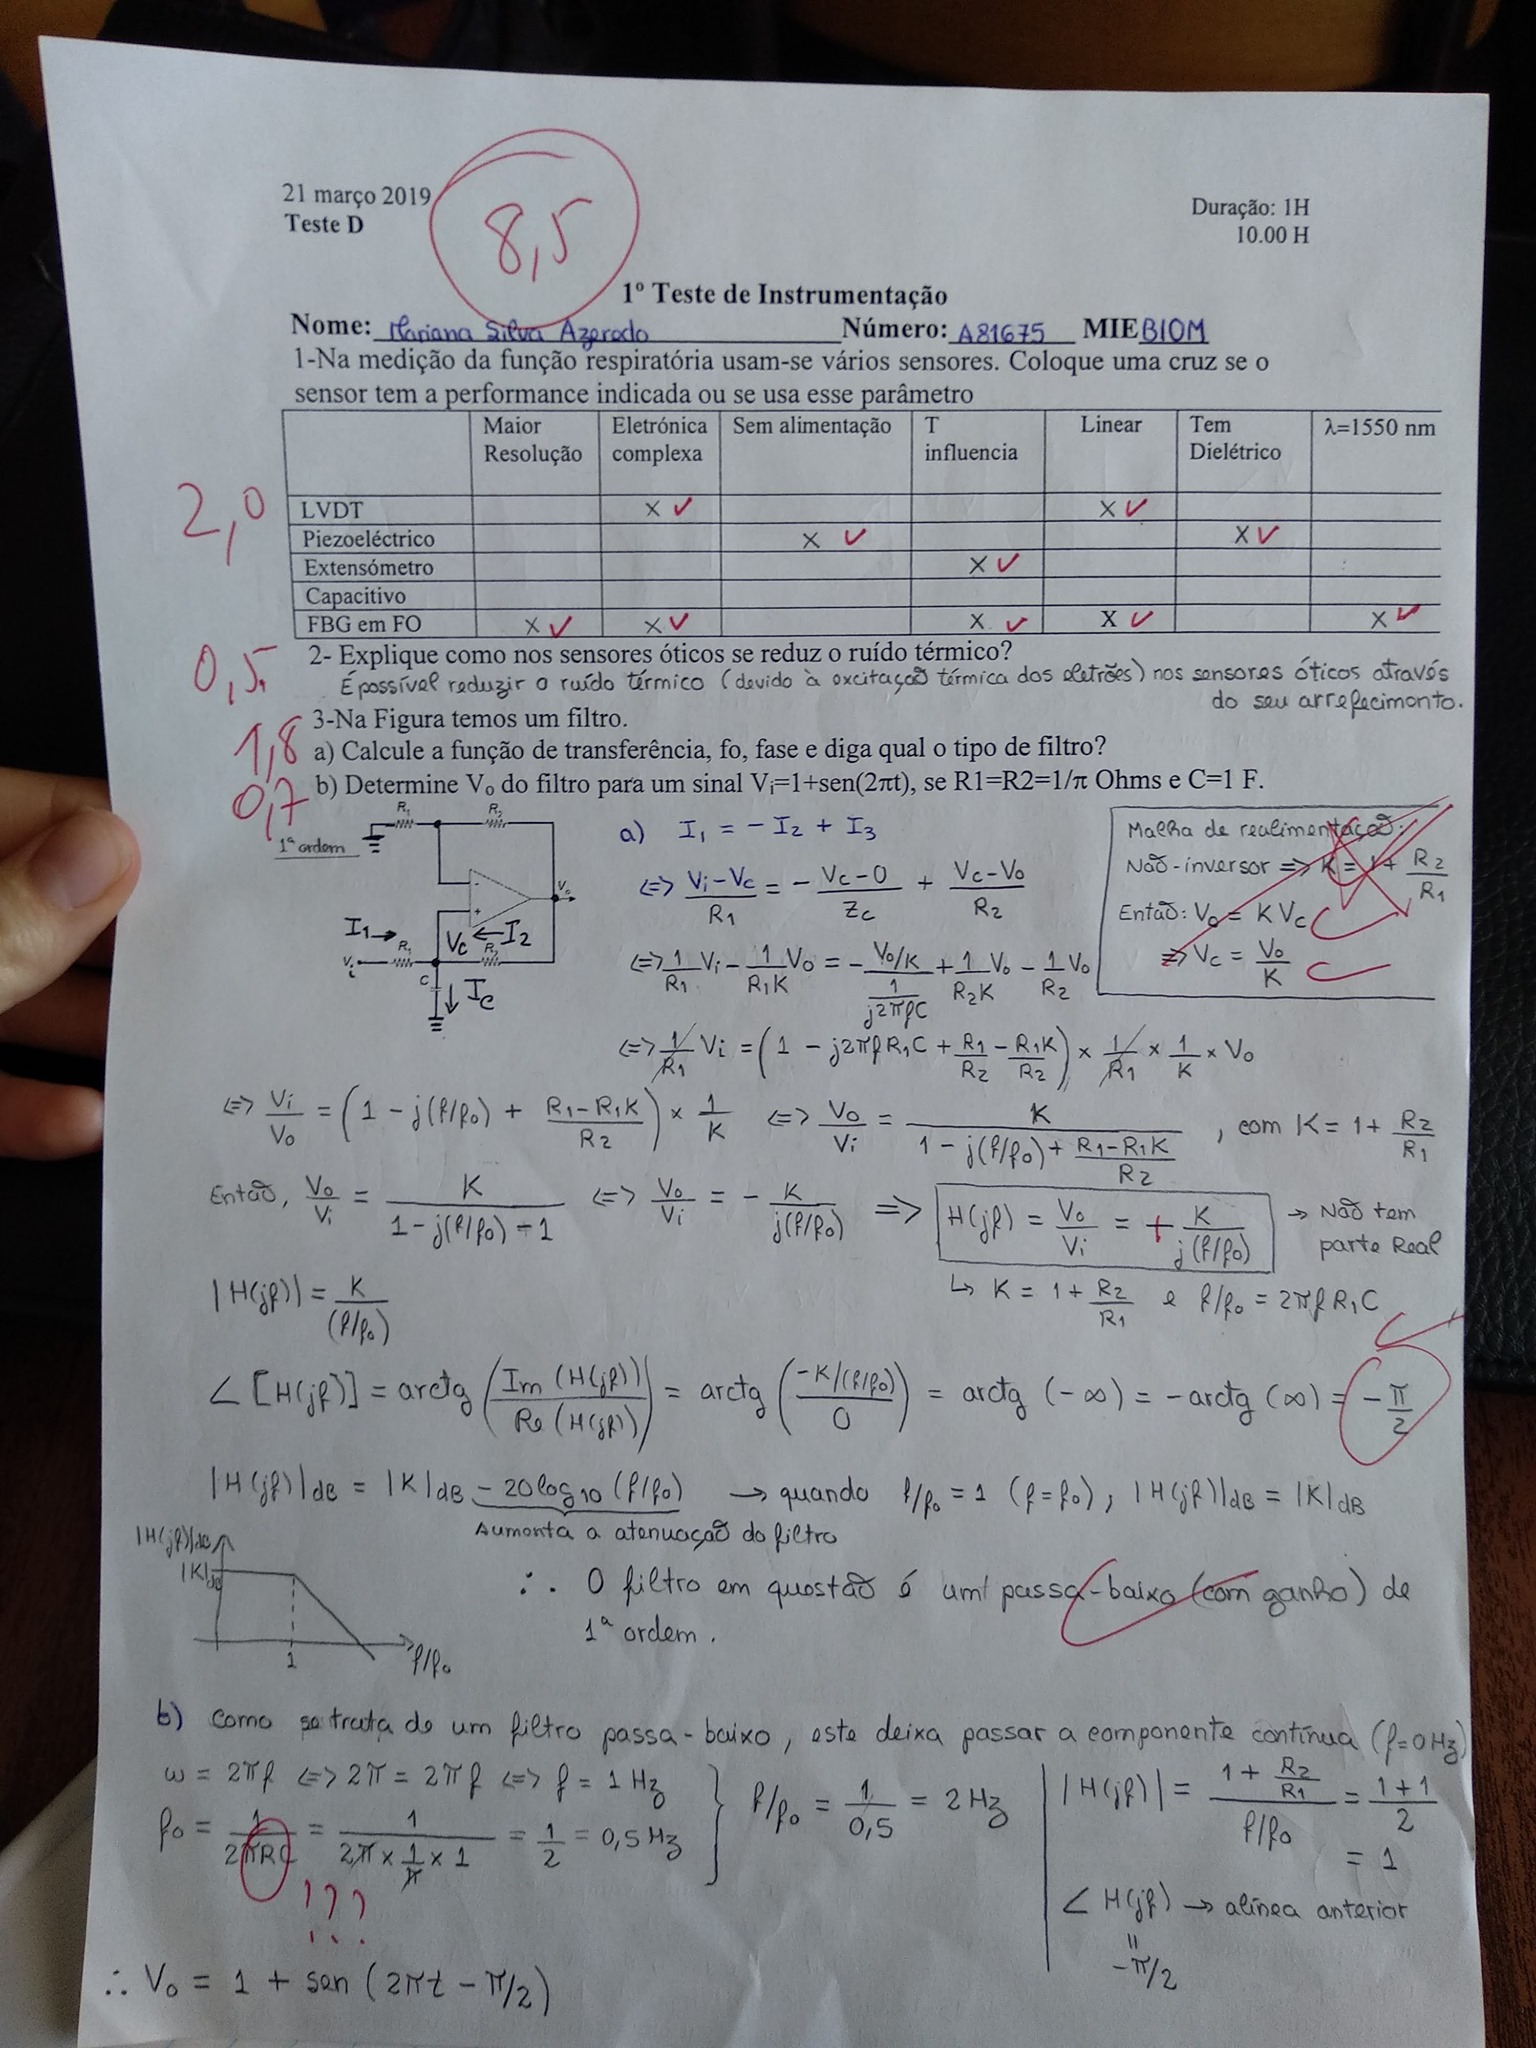 21 março 2019
Teste D
8,5
Duração: 1H
10.00 H
1º Teste de Instrumentação
Nome: Mariana Silva Azeredo Número: A81675 MIEBIOM
1-Na medição da função respiratória usam-se vários sensores. Coloque uma cruz se o
sensor tem a performance indicada ou se usa esse parâmetro
Maior Resolução Eletrónica complexa Sem alimentação T influencia Linear Tem Dielétrico λ=1550 nm
2,0
LVDT X ✓ X ✓
Piezoeléctrico X ✓ X ✓
Extensómetro X ✓
Capacitivo
FBG em FO X ✓ X ✓ X ✓ X ✓ X ✓
0,5
2- Explique como nos sensores óticos se reduz o ruído térmico?
É possível reduzir o ruído térmico (devido à excitação térmica dos eletrões) nos sensores óticos através
do seu arrefecimento.
3-Na Figura temos um filtro.
1,8
a) Calcule a função de transferência, fo, fase e diga qual o tipo de filtro?
0,7
b) Determine Vo do filtro para um sinal Vi=1+sen(2πt), se R1=R2=1/π Ohms e C=1 F.
1ª ordem
R1 R2
- +
Vo
I1→ R1 Vc ←I2 R2
Vi
C ↓ Ic
a) I1 = -I2 + I3
⇔ (Vi-Vc)/R1 = - (Vc-0)/Zc + (Vc-Vo)/R2
Malha de realimentação:
Não-inversor ⇒ K = 1 + R2/R1
Então: Vo = K Vc
⇒ Vc = Vo/K
⇔ 1/R1 Vi - 1/(R1K) Vo = - (Vo/K)/(1/(j2πfC)) + 1/(R2K) Vo - 1/R2 Vo
⇔ 1/R1 Vi = (1 - j2πfR1C + R1/R2 - R1K/R2) × 1/R1 × 1/K × Vo
⇔ Vi/Vo = (1 - j(f/fo) + (R1-R1K)/R2) × 1/K ⇔ Vo/Vi = K/(1 - j(f/fo) + (R1-R1K)/R2) , com K = 1 + R2/R1
Então, Vo/Vi = K/(1 - j(f/fo) - 1) ⇔ Vo/Vi = - K/(j(f/fo)) ⇒ H(jf) = Vo/Vi = + K/(j(f/fo)) → Não tem parte Real
↳ K = 1 + R2/R1 e f/fo = 2πfR1C
|H(jf)| = K/(f/fo)
∠[H(jf)] = arctg (Im (H(jf))/Re (H(jf))) = arctg (-K/(f/fo)/0) = arctg (-∞) = -arctg (∞) = -π/2
|H(jf)|dB = |K|dB - 20log10 (f/fo) → quando f/fo = 1 (f=fo), |H(jf)|dB = |K|dB
Aumenta a atenuação do filtro
|H(jf)|dB
|K|dB
1
f/fo
∴ O filtro em questão é um passa-baixo (com ganho) de
1ª ordem.
b) Como se trata de um filtro passa-baixo, este deixa passar a componente contínua (f=0Hz)
ω = 2πf ⇔ 2π = 2πf ⇔ f = 1 Hz
fo = 1/(2πRC) = 1/(2π × 1/π × 1) = 1/2 = 0,5 Hz
f/fo = 1/0,5 = 2 Hz
???
|H(jf)| = (1 + R2/R1)/(f/fo) = (1+1)/2
= 1
∠ H(jf) → alínea anterior
=
-π/2
∴ Vo = 1 + sen (2πt - π/2)